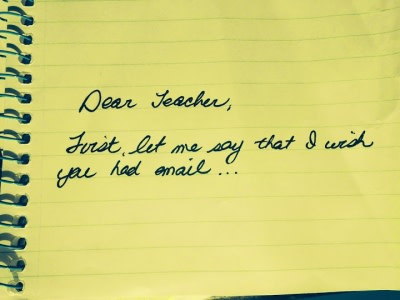 Dear Teacher,
First, let me say that I wish
you had email...